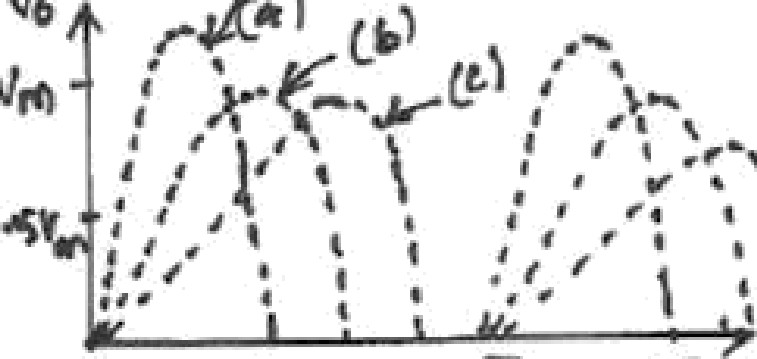 (a)
(b)
(c)
Vm
.5Vm